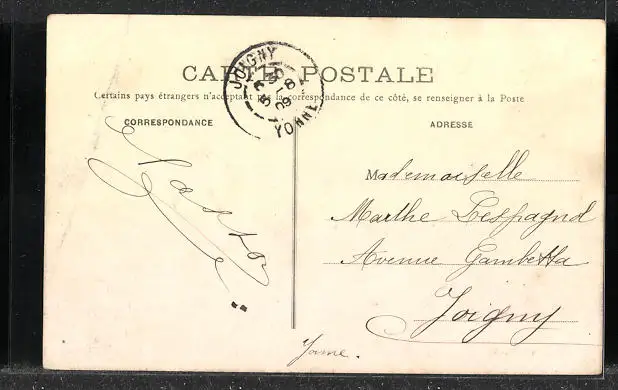 CARTE POSTALE
Certains pays étrangers n'acceptant pas la correspondance de ce côté, se renseigner à la Poste
JOIGNY
YONNE
CORRESPONDANCE
ADRESSE
Mademoiselle
Marthe Lespagnol
Avenue Gambetta
Joigny
Yonne.